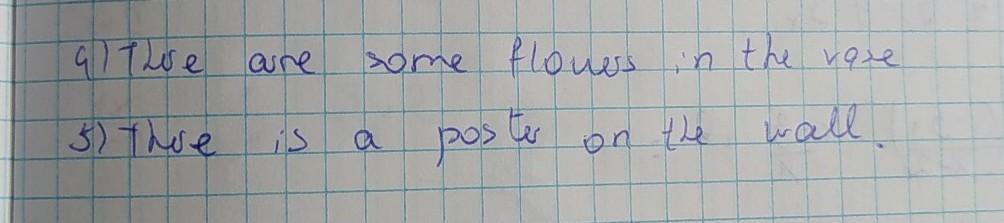 4) There are some flowers in the vase
5) There is a poster on the wall.